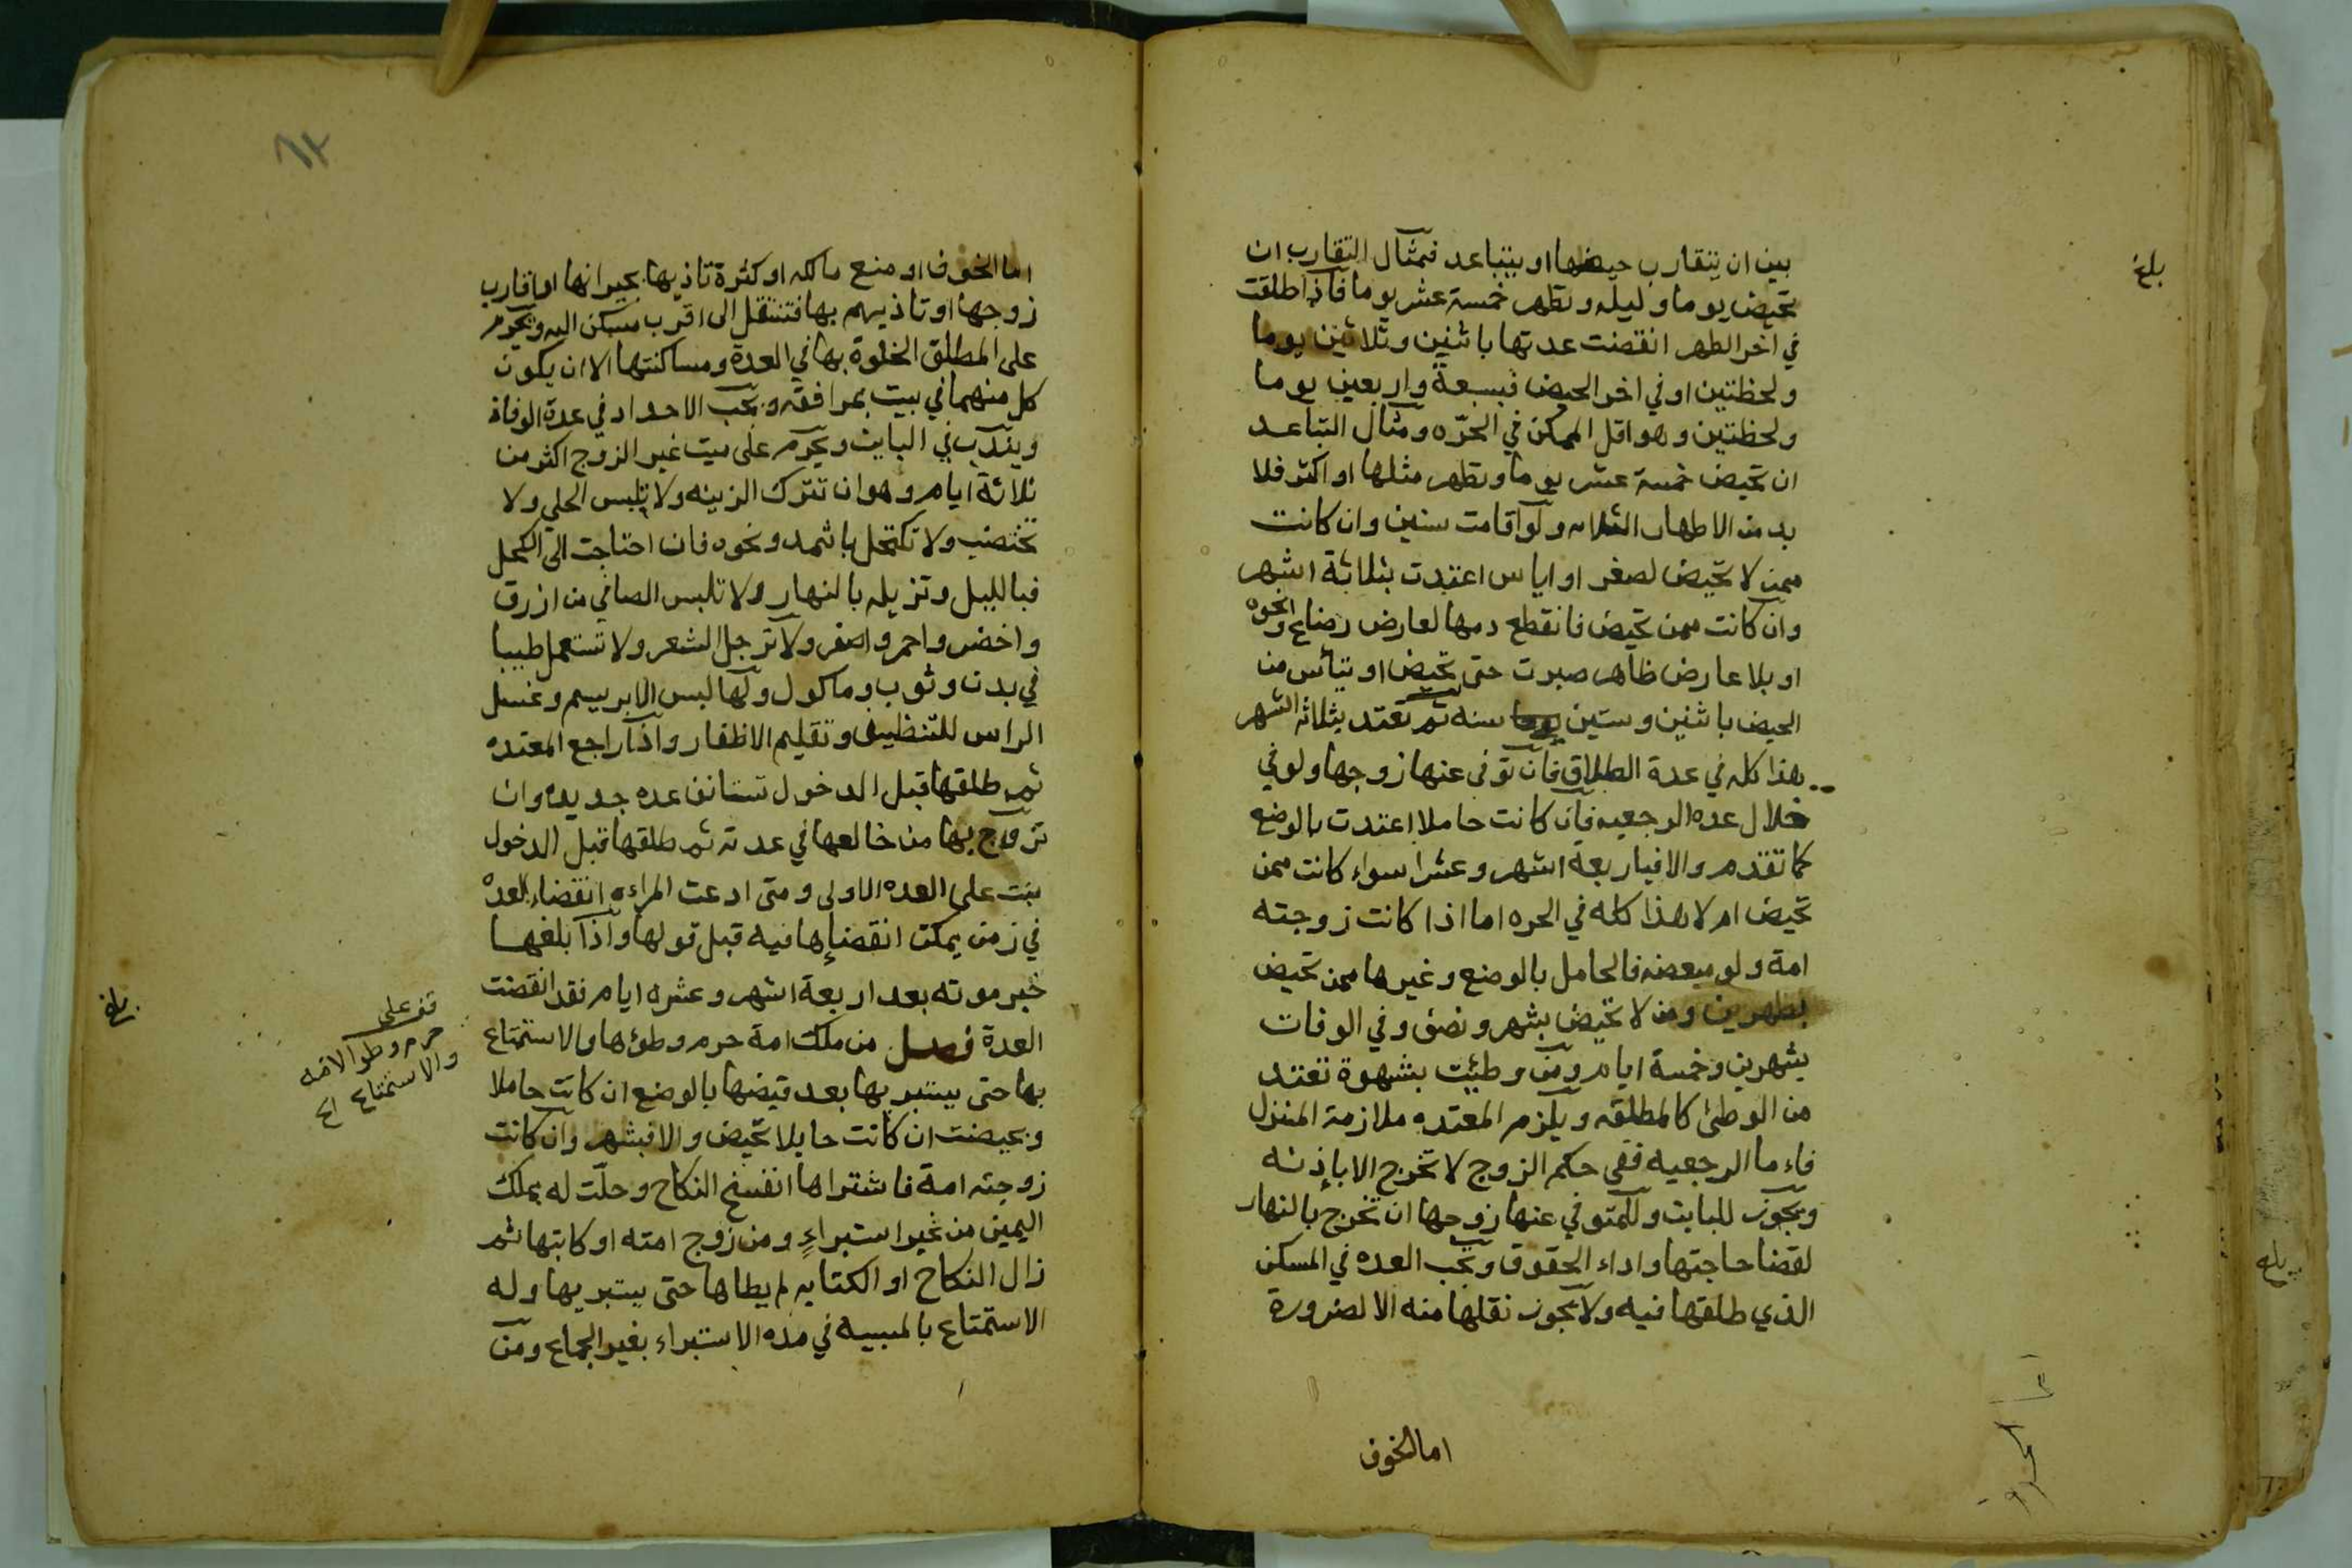 بين ان يتقارب حيضها او يتباعد فمثال التقارب ان
تحيض يوما وليله وتطهر خمسة عشر يوما فاذا طلقت
في اخر الطهر انقضت عدتها باثنين وثلاثين يوما
ولحظتين او في اخر الحيض فبسبعة واربعين يوما
ولحظتين وهو اقل الممكن في الحرّه ومثال التباعد
ان تحيض خمسة عشر يوما وتطهر مثلها او اكثر فلا
بد من الاطهار الثلاثه ولو اقامت سنين وان كانت
ممن لا تحيض لصغر او اياس اعتدت بثلاثة اشهر
وان كانت ممن تحيض فانقطع دمها لعارض رضاع ونحوه
او بلا عارض ظاهر صبرت حتى تحيض او تيأس من
الحيض باثنين وستين سنه ثم تعتد بثلاثة اشهر
هذا كله في عدة الطلاق فان توفى عنها زوجها ولو في
خلال عده الرجعيه فان كانت حاملا اعتدت بالوضع
كما تقدم والا فباربعة اشهر وعشرا سواء كانت ممن
تحيض ام لا هذا كله في الحره اما اذا كانت زوجته
امة ولو مبعضه فالحامل بالوضع وغيرها ممن تحيض
بطهرين ومن لا تحيض بشهر ونصف وفي الوفات
بشهرين وخمسة ايام ومن وطئت بشهوة تعتد
من الوطئ كالمطلقه ويلزم المعتده ملازمة المنزل
فاء ما الرجعيه ففى حكم الزوج لا تخرج الا باذنه
ويجوز للبايت وللمتوفي عنها زوجها ان تخرج بالنهار
لقضا حاجتها واداء الحقوق وتجب العده في المسكن
الذي طلقها فيه ولا يجوز نقلها منه الا لضرورة
اما الخوف
بلغ
اما الخوف او منع مالكه او كثرة تاذيها بجيرانها او اقارب
زوجها او تاذيهم بها فتنتقل الى اقرب مسكن اليه ويحرم
على المطلق الخلوة بها في العدة ومساكنتها الا ان يكون
كل منهما في بيت بمرافقه وتجب الاحداد في عدة الوفاة
ويندب في البايت ويحرم على ميت غير الزوج اكثر من
ثلاثة ايام وهو ان تترك الزينه ولا تلبس الحلي ولا
تختضب ولا تكتحل باثمد ونحوه فان احتاجت الى الكحل
فبالليل وتزيله بالنهار ولا تلبس الصافي من ازرق
واخضر واحمر واصفر ولا ترجل الشعر ولا تستعمل طيبا
في بدن وثوب وماكول ولها لبس الابريسم وغسل
الراس للتنظيف وتقليم الاظفار واذا راجع المعتده
ثم طلقها قبل الدخول تستانف عده جديده وان
تزوج بها من خالعها في عدته ثم طلقها قبل الدخول
بنت على العده الاولى ومتى ادعت المراه انقضاء العده
في زمن يمكن انقضاءها فيه قبل قولها واذا بلغها
خبر موته بعد اربعة اشهر وعشره ايام فقد انقضت
العدة فصل من ملك امة حرم وطؤها والاستمتاع
بها حتى يستبريها بعد قبضها بالوضع ان كانت حاملا
وبحيضت ان كانت حايلا تحيض والا فبشهر وان كانت
زوجته امة فاشتراها انفسخ النكاح وحلّت له بملك
اليمين من غير استبراءٍ ومن زوج امته او كاتبها ثم
زال النكاح او الكتابه لم يطاها حتى يستبريها وله
الاستمتاع بالمسبيه في مده الاستبراء بغير الجماع ومن
قف على
حرم وطو الامه
والاستمتاع الخ
بلغ
بلغ